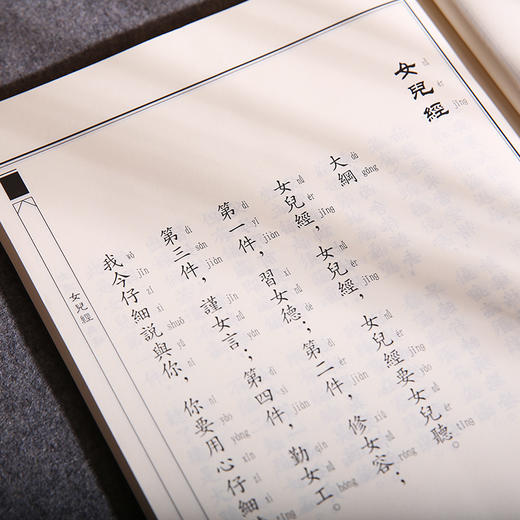 女兒經
nǚ ér jīng
大綱
dà gāng
女兒經，女兒經，女兒經要女兒聽。
第一件，習女德；第二件，修女容；
第三件，謹女言；第四件，勤女工。
我今仔細說與你，你要用心仔細
女兒經